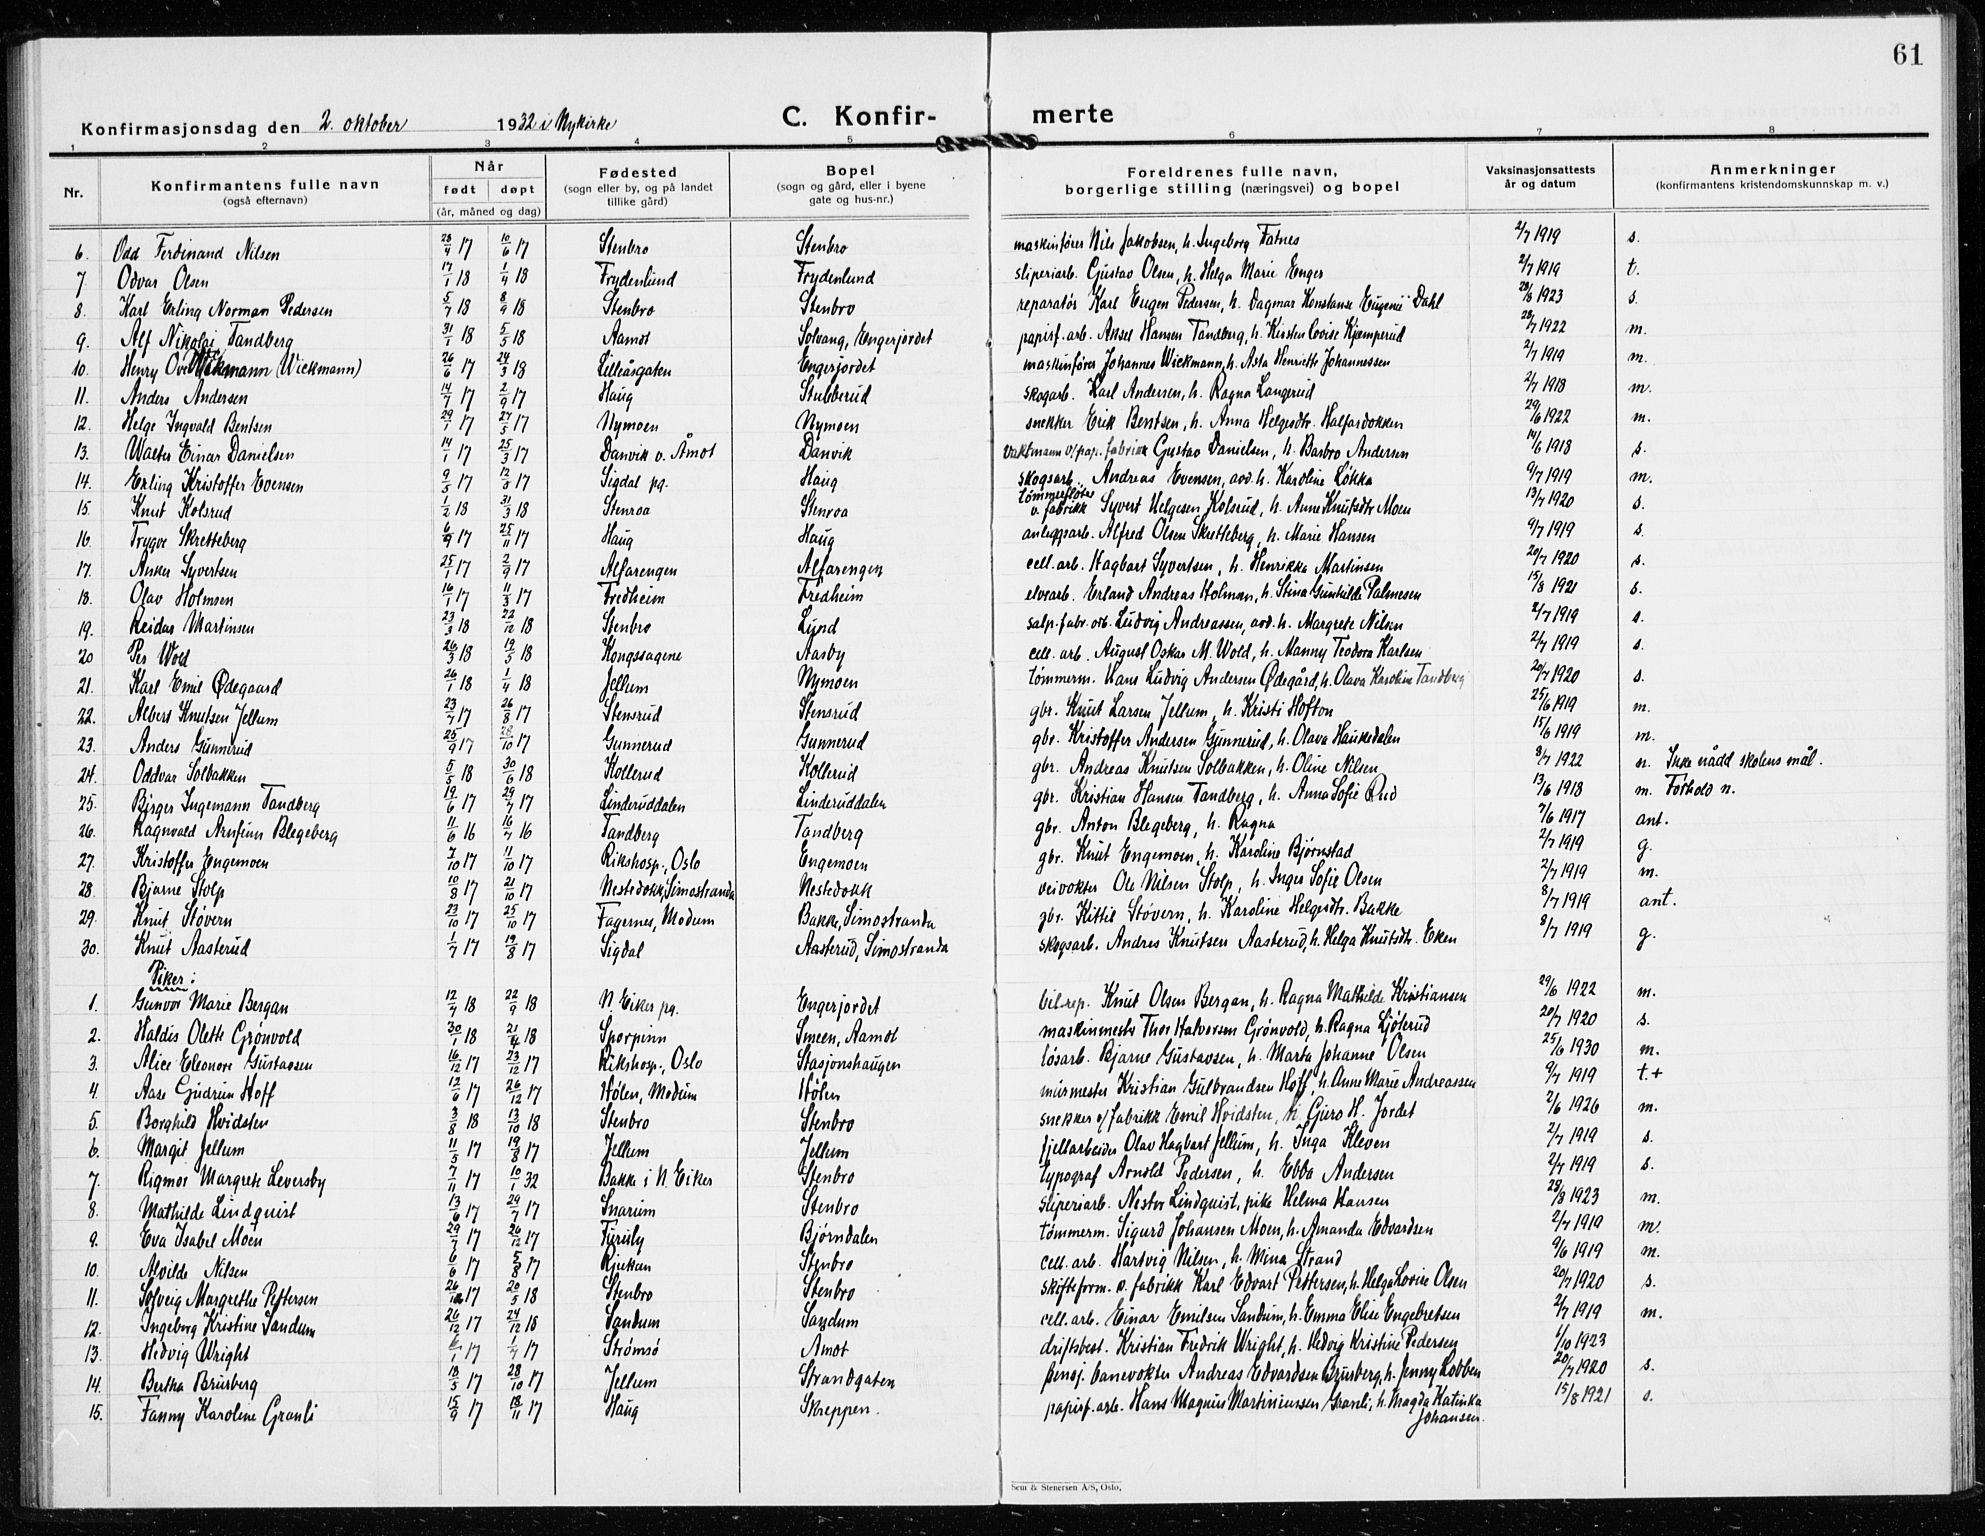 61
Konfirmasjonsdag den 2. oktober 1932 i Nykirke C. Konfir- merte
1 2 3 4 5 6 7 8
Nr. Konfirmantens fulle navn (også efternavn) Når født døpt (år, måned og dag) Fødested (sogn eller by, og på landet tillike gård) Bopel (sogn og gård, eller i byene gate og hus-nr.) Foreldrenes fulle navn, borgerlige stilling (næringsvei) og bopel Vaksinasjonsattests år og datum Anmerkninger (konfirmantens kristendomskunnskap m. v.)
6. Odd Ferdinand Nilsen 28/4 17 10/6 17 Stenbro Stenbro maskinfører Nils Jakobsen, h. Ingeborg Fatnes 2/7 1919 s.
7. Odvar Olsen 17/1 18 1/4 18 Frydenlund Frydenlund sliperiarb. Gustav Olsen, h. Helga Marie Enger 2/7 1919 t.
8. Karl Erling Norman Pedersen 5/7 18 8/9 18 Stenbro Stenbro reparatør Karl Eugen Pedersen, h. Dagmar Konstanse Eugenie Dahl 28/8 1923 s.
9. Alf Nikolai Tandberg 31/1 18 5/5 18 Aamot Solvang, Engerjordet papirf.arb. Aksel Hansen Tandberg, h. Kirsten Lovise Kjemperud 28/7 1922 m.
10. Henry Ove Wikmann (Wickmann) 26/6 17 24/3 18 Lilleåsgaten Engerjordet maskinfører Johannes Wickmann, h. Asta Henriette Johannessen 2/7 1919 m.
11. Anders Andersen 14/7 17 2/9 17 Haug Stubberud skogarb. Karl Andersen, h. Ragna Langerud 2/7 1918 m.
12. Helge Ingvald Bentsen 29/1 17 27/5 17 Nymoen Nymoen snekker Erik Bentsen, h. Anna Helgesdtr. Halfardokken 29/6 1922 m.
13. Walter Einar Danielsen 14/1 17 25/3 17 Danvik v. Åmot Danvik Vaktmann v/pap. fabrikk Gustav Danielsen, h. Barbro Andersen 14/6 1918 s.
14. Erling Kristoffer Evensen 9/5 17 12/8 17 Sigdal pg. Haug skogsarb. Andreas Evensen, avd. h. Karoline Løkka 9/7 1919 m.
15. Knut Kolsrud 1/2 18 31/3 18 Stenroa Stenroa tømmerfløter v. fabrikk Syvert Helgesen Kolsrud, h. Anne Knutsdtr Moen 13/7 1920 s.
16. Trygve Skretteberg 6/9 17 25/11 17 Haug Haug anleggsarb. Alfred Olsen Skretteberg, h. Marie Hansen 9/7 1919 s.
17. Anker Syvertsen 25/1 17 2/9 17 Alfarengen Alfarengen cell. arb. Hagbart Syvertsen, h. Henrikka Martinsen 20/7 1920 s.
18. Olav Holmsen 16/1 17 11/3 17 Fredheim Fredheim elvearb. Erland Andreas Holman, h. Stina Gunhilde Palmesen 15/8 1921 s.
19. Reidar Martinsen 23/3 18 22/12 18 Stenbro Lund salp. fabr. arb. Ludvig Andreassen, avd. h. Margrete Nilsen 2/7 1919 s.
20 Per Wold 26/3 18 19/5 18 Kongssagene Aasby cell. arb. August Oskar M. Wold, h. Nanny Teodora Karlsen 2/7 1919 s.
21. Karl Emil Ødegaard 26/1 18 1/4 18 Jellum Nymoen tømmerm. Hans Ludvig Andersen Ødegård, h. Olava Karoline Tandberg 20/7 1920 s.
22. Albert Knutsen Jellum 23/7 17 26/8 17 Stensrud Stensrud gbr. Knut Larsen Jellum, h. Kristi Hofton 25/6 1919 m.
23. Anders Gunnerud 25/9 17 28/10 17 Gunnerud Gunnerud gbr. Kristoffer Andersen Gunnerud, h. Olava Haukedalen 15/6 1919 m.
24. Oddvar Solbakken 5/5 18 30/6 18 Kollerud Kollerud gbr. Andreas Knutsen Solbakken, h. Oline Nilsen 8/7 1922 n. Ikke nådd skolens mål.
25. Birger Ingemann Tandberg 19/6 17 29/7 17 Linderuddalen Linderuddalen gbr. Kristian Hansen Tandberg, h. Anna Sofie Rud 13/6 1918 m. Forhold n.
26. Ragnvald Arnfinn Blegeberg 11/6 16 16/7 16 Tandberg Tandberg gbr. Anton Blegeberg, h. Ragna 7/6 1917 ant.
27. Kristoffer Engemoen 7/10 17 11/10 17 Rikshosp., Oslo Engemoen gbr. Knut Engemoen, h. Karoline Bjørnstad 2/7 1919 g.
28. Bjarne Stolp 10/8 17 21/10 17 Nestedokk, Simostranda Nestedokk veivokter Ole Nilsen Stolp, h. Inger Sofie Olsen 2/7 1919 m.
29. Knut Støvern 23/10 17 25/10 17 Fagernes, Modum Bakke, Simostranda gbr. Kittil Støvern, h. Karoline Helgesdtr. Bakke 8/7 1919 ant.
30. Knut Aasterud 1/7 17 19/8 17 Sigdal Aasterud, Simostranda skogsarb. Andres Knutsen Aasterud, h. Helga Knutsdtr. Eken 8/7 1919 g.
Piker:
1. Gunvor Marie Bergan 12/7 18 22/9 18 N. Eiker pg. Engerjordet bilrep. Knut Olsen Bergan, h. Ragna Mathilde Kristiansen 29/6 1922 m.
2. Haldis Olette Grønvold 30/1 18 21/4 18 Sporpinn Smeen, Aamot maskinmester Thor Halvorsen Grønvold, h. Ragna Ljøterud 20/7 1920 s.
3. Alice Eleonore Gustavsen 16/12 17 23/12 17 Rikshosp., Oslo Stasjonshaugen løsarb. Bjarne Gustavsen, h. Marta Johanne Olsen 25/6 1930 m.
4. Aase Gudrun Hoff 12/6 17 26/12 17 Hølen, Modum Hølen murmester Kristian Gulbrandsen Hoff, h. Anne Marie Andreassen 9/7 1919 t.+
5. Borghild Hvidsten 3/8 18 13/10 18 Stenbro Stenbro snekker v/ fabrikk Emil Hvidsten, h. Guro H. Jordet 2/6 1926 m.
6. Margit Jellum 11/5 17 19/8 17 Jellum Jellum fjellarbeider Olav Hagbart Jellum, h. Inga Kleven 2/7 1919 s.
7. Rigmor Margrete Leversby 7/11 17 10/1 32 Bakke i N. Eiker Stenbro typograf Arnold Pedersen, h. Ebba Andersen 2/7 1919 s.
8. Mathilde Lindquist 13/6 17 29/7 17 Snarum Stenbro sliperiarb. Nestor Lindquist, pike Helma Hansen 28/8 1923 m.
9. Eva Isabel Moen 29/7 17 26/12 17 Furuly Bjørndalen tømmerm. Sigurd Johansen Moen, h. Amanda Edvardsen 2/7 1919 m.
10. Alvilde Nilsen 6/6 17 5/8 17 Rjukan Stenbro cell. arb. Hartvig Nilsen, h. Mina Strand 9/6 1919 m.
11. Solveig Margrethe Pettersen 26/12 17 20/5 18 Stenbro Stenbro skifteform. v. fabrikk Karl Edvart Pettersen, h. Helga Lovise Olsen 20/7 1920 s.
12. Ingeborg Kristine Sandum 26/12 17 24/12 18 Sandum Sandum cell. arb. Einar Emilsen Sandum, h. Emma Elise Engebretsen 2/7 1919 m.
13. Hedvig Wright 17 1/7 17 Strømsø Amot driftsbest. Kristian Fredrik Wright, h. Hedvig Kristine Pedersen 6/10 1923
14. Bertha Brusberg 18/5 17 28/10 17 Jellum Strandgaten pensj. banevokter Andreas Edvardsen Brusberg, h. Jenny Lobben 20/7 1920 s.
15. Fanny Karoline Granli 15/9 17 18/11 17 Haug Skreppen. papirf. arb. Hans Magnus Martiniussen Granli, h. Magda Katinka Johansen. 15/8 1921 s.
Sem & Stenersen A/S, Oslo.